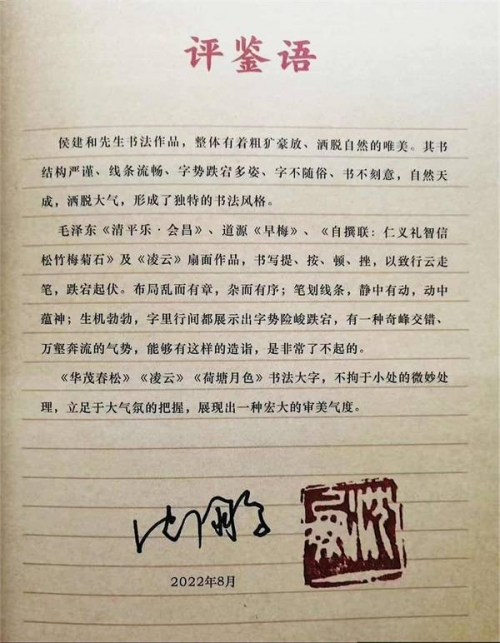 评鉴语
侯建和先生书法作品，整体有着粗犷豪放、洒脱自然的唯美。其书
结构严谨、线条流畅、字势跌宕多姿、字不随俗、书不刻意，自然天
成，洒脱大气，形成了独特的书法风格。
毛泽东《清平乐·会昌》、道源《早梅》、《自撰联：仁义礼智信
松竹梅菊石》及《凌云》扇面作品，书写提、按、顿、挫，以致行云走
笔，跌宕起伏。布局乱而有章，杂而有序；笔划线条，静中有动，动中
蕴神；生机勃勃，字里行间都展示出字势险峻跌宕，有一种奇峰交错、
万壑奔流的气势，能够有这样的造诣，是非常了不起的。
《华茂春松》《凌云》《荷塘月色》书法大字，不拘于小处的微妙处
理，立足于大气氛的把握，展现出一种宏大的审美气度。
沈鹏
2022年8月